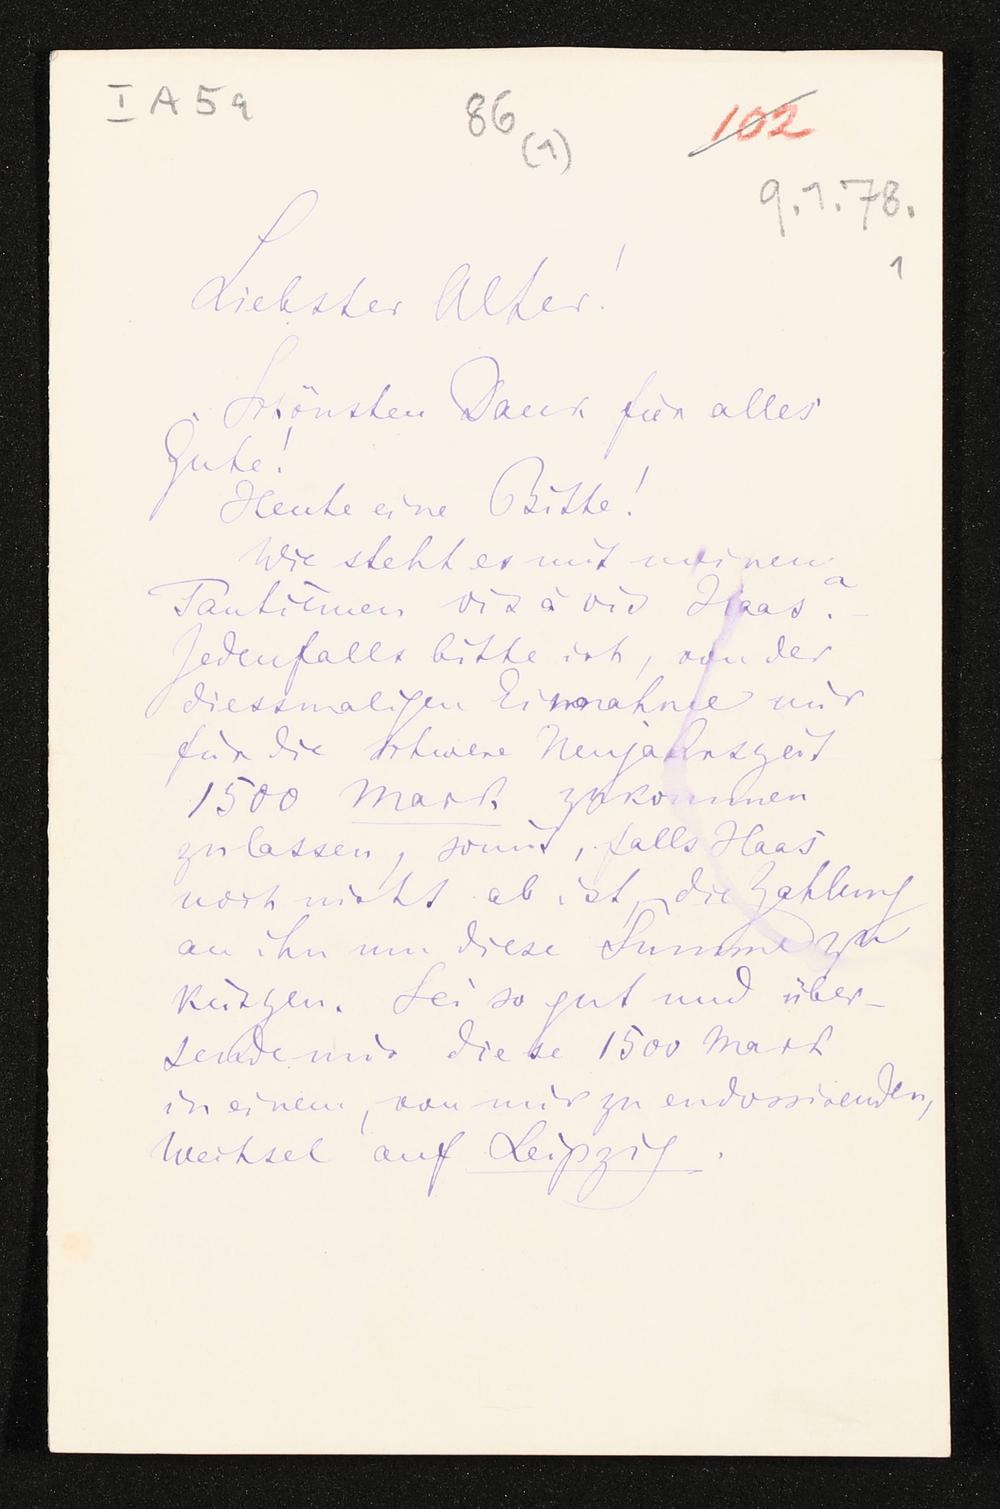 I A 5a
86
(1)
102
9.1.78.
1
Liebster Alter!
Schönsten Dank für alles
Gute!
Heute eine Bitte!
Wie steht es mit meinen
Tantièmen vis à vis Haas?
Jedenfalls bitte ich, von der
diessmaligen Einnahme mir
für die schwere Neujahrszeit
1500 Mark zukommen
zu lassen, somit, falls Haas
noch nicht ab ist, die Zahlung
an ihn um diese Summe zu
kürzen. Sei so gut und über-
sende mir diese 1500 Mark
in einem, von mir zu endossirenden,
Wechsel auf Leipzig.